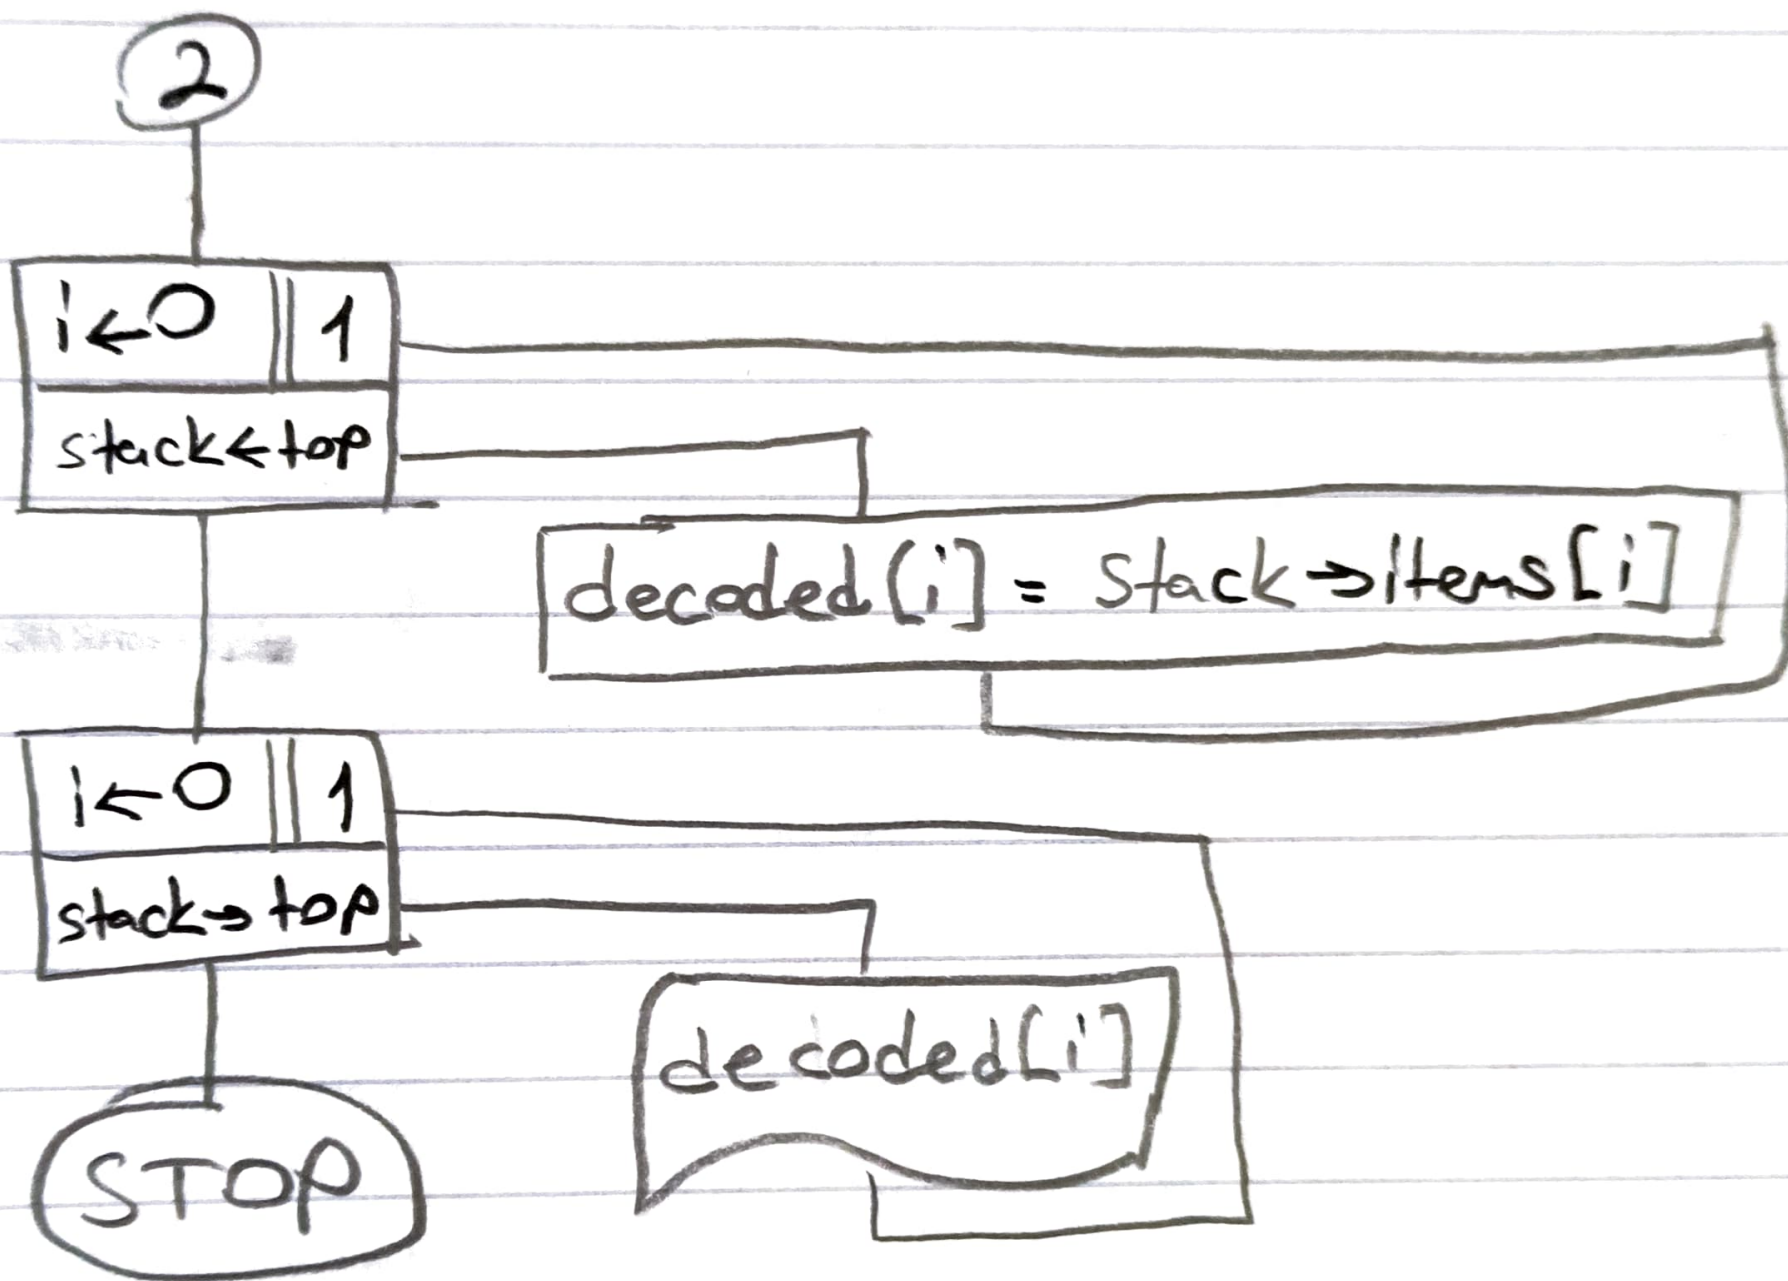 2
i←0 1
stack←top
decoded[i] = Stack→items[i]
i←0 1
stack→top
decoded[i]
STOP